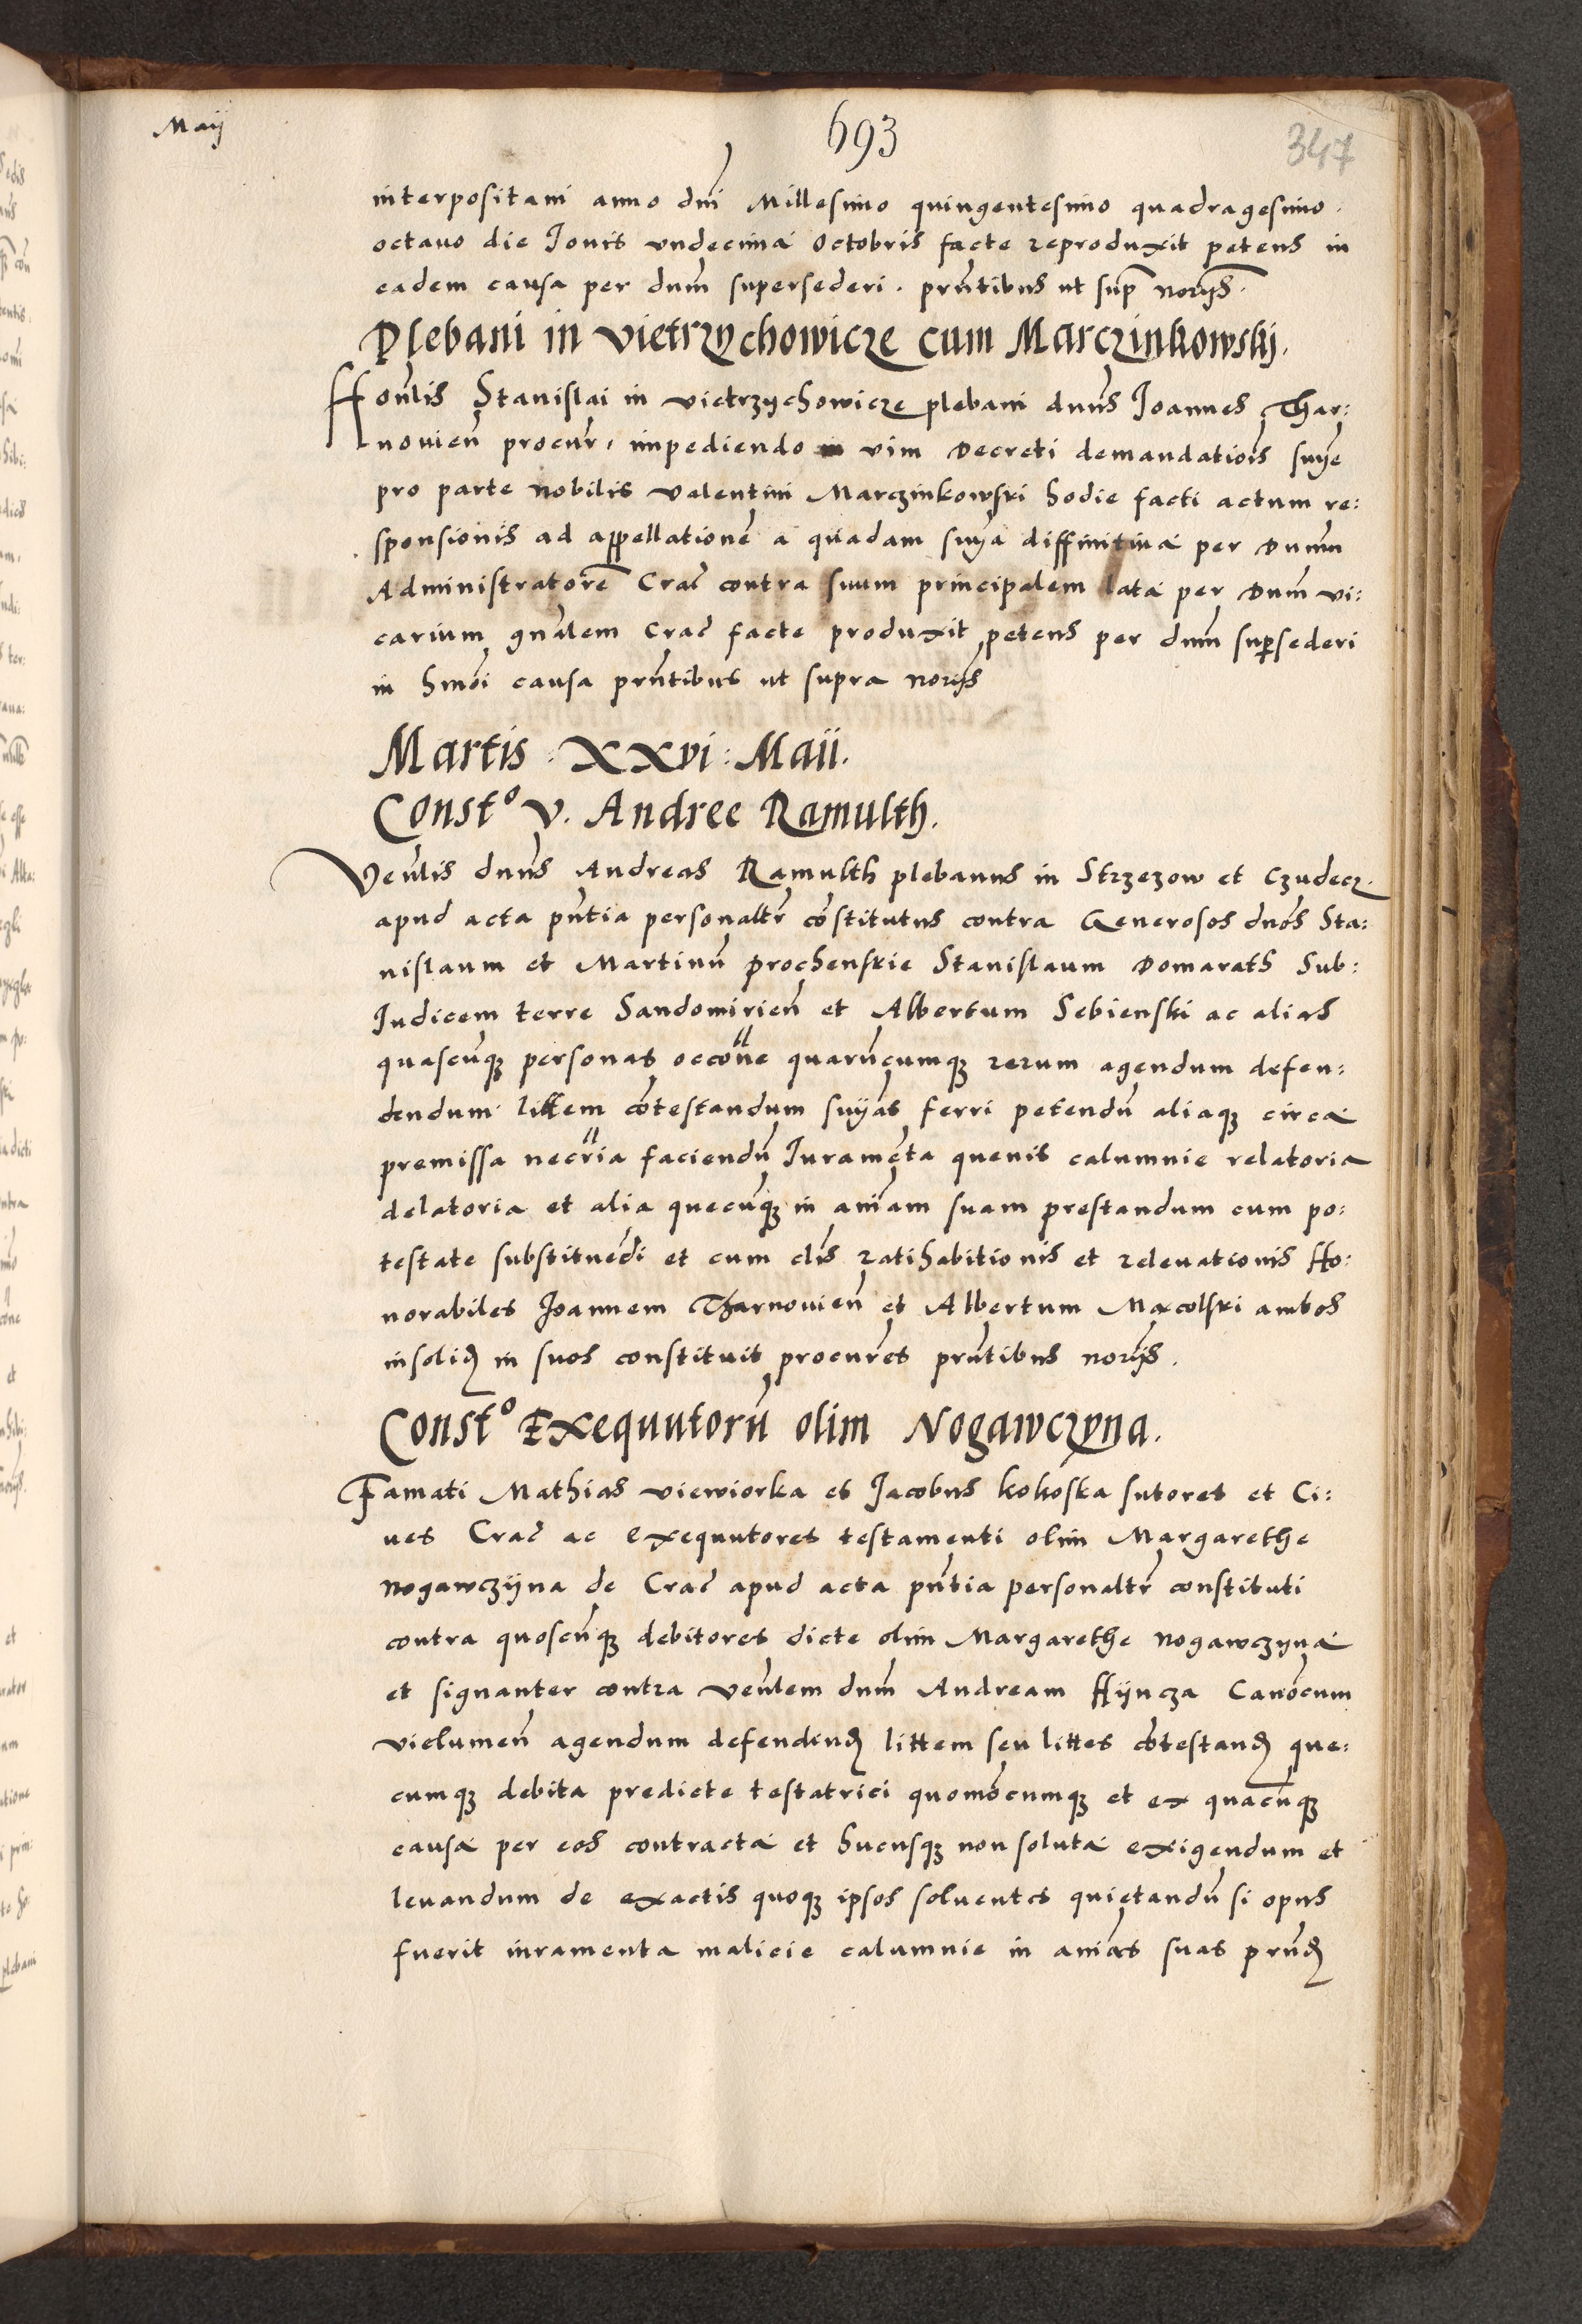 Maij
693
347
interpositam anno dnĩ Millesimo quingentesimo quadragesimo
octauo die Iouis vndecima Octobris facte reproduxit petens in
eadem causa per dnm̃ supersederi. prñtibus ut sup̃ norijs.
Plebani in Vietrzychowicze cum Marczinkowskj.
Honlis Stanislai in Vietrzychowicze plebani dnns Ioannes Thar:
nouien̄ procur̃, impediendo in vim Decreti demandatiõis snye
pro parte Nobilis Valentini Marczinkowski hodie facti actum re:
sponsionis ad appellationẽ a quadam snya diffinitiua per Dnum
Administratorẽ Crac̃ contra suum principalem lata per Dnm̃ vi:
carium gnãlem Crac̃ facte produxit petens per dnm̃ supersederi
in hmõi causa prñtibus ut supra norijs
Martis : XXVI : Maii.
Constᵒ V. Andree Ramulth.
Venlis dnns Andreas Ramulth plebanus in Strzezow et Czudecz.
apud acta pñtia personaltr̃ cõstitutus contra Generosos dnõs Sta:
nislaum et Martinũ Prochenskie Stanislaum Domarath Sub:
Iudicem terre Sandomirien̄ et Albertum Sebienski ac alias
quascũqȝ personas occõne quarũcumqȝ rerum agendum defen:
dendum littem cõtestandum snyas ferri petendũ aliaqȝ circa
premissa necr̃ia faciendũ Iuramẽta queuis calumnie relatoria
delatoria et alia quecũqȝ in anĩam suam prestandum cum po:
testate substituẽdi et cum clis ratihabitionis et releuationis Ho:
norabiles Ioannem Tharnouien̄ et Albertum Macolski ambos
in solid in suos constituit procurẽs prñtibus norijs.
Constᵒ Exequutorũ olim Nogawczyna.
Famati Mathias Viewiorka et Jacobus kokoska sutores et Ci:
ues Crac̃ ac Exequutores testamenti olim Margarethe
Nogawczijna de Crac̃ apud acta pñtia personaltr̃ constituti
contra quoscũqȝ debitores dicte olim Margarethe Nogawczyna
et signanter contra Venlem dnm̃ Andream Hijncza Canõcum
Vielumen̄ agendum defendend littem seu littes cõtestand que:
cumqȝ debita predicte testatrici quomõcumqȝ et ex quacũqȝ
causa per eos contracta et hucusqȝ non soluta exigendum et
leuandum de exactis quoqȝ ipsos soluentes quietandũ si opus
fuerit iuramenta malicie calumnie in anĩas suas prñd